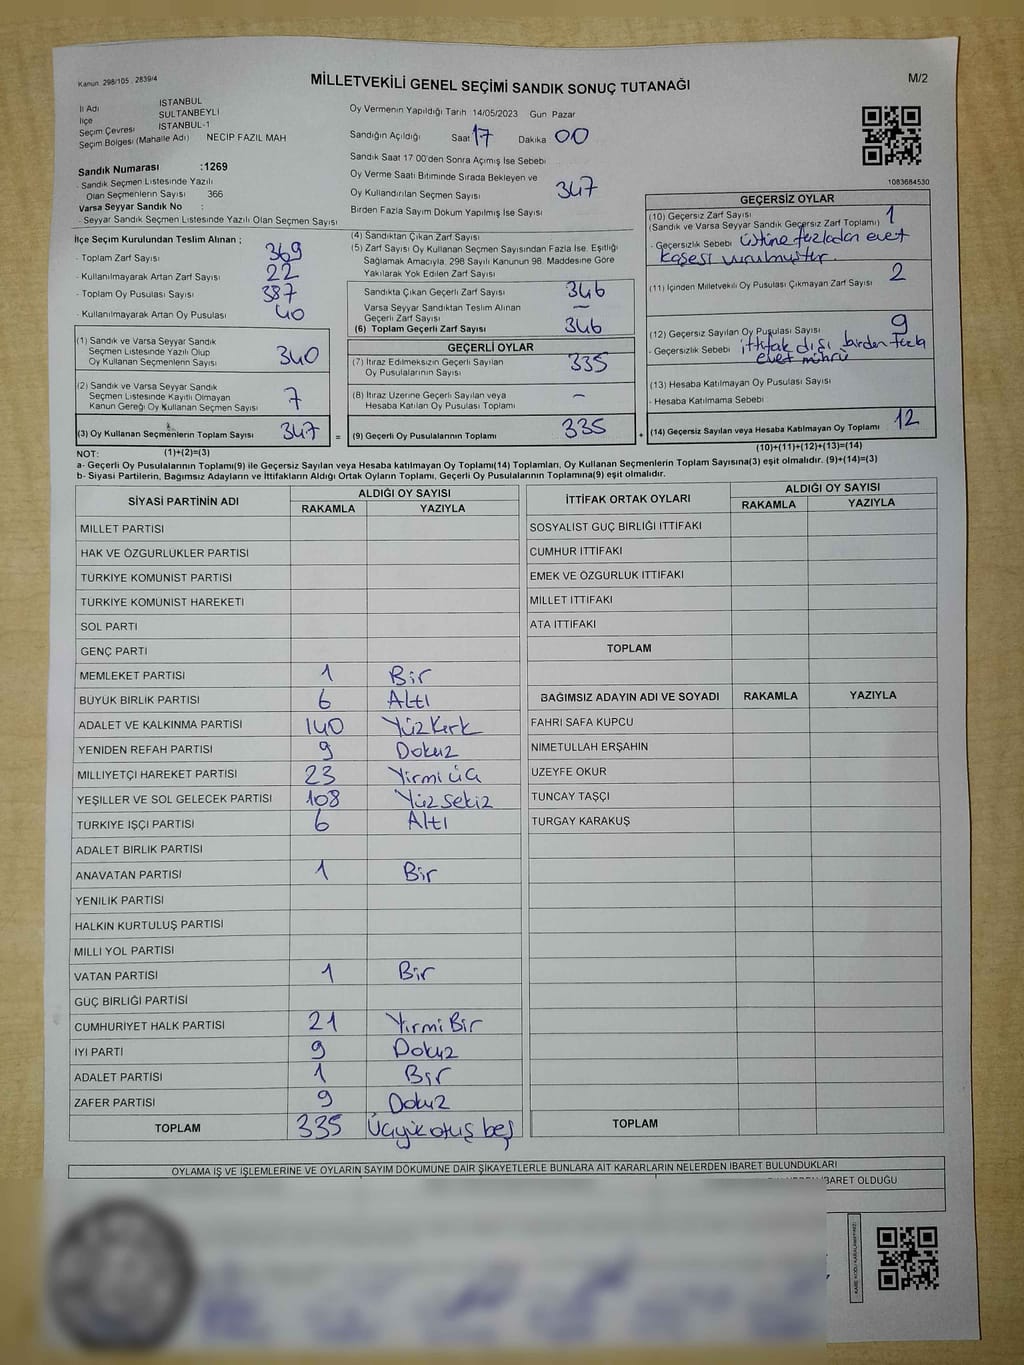 Kanun 298/105 , 2839/4
MİLLETVEKİLİ GENEL SEÇİMİ SANDIK SONUÇ TUTANAĞI
M/2
İl Adı İSTANBUL
İlçe SULTANBEYLİ
Seçim Çevresi İSTANBUL-1
Seçim Bölgesi (Mahalle Adı) NECİP FAZIL MAH
Sandık Numarası :1269
- Sandık Seçmen Listesinde Yazılı
Olan Seçmenlerin Sayısı 366
Varsa Seyyar Sandık No :
- Seyyar Sandık Seçmen Listesinde Yazılı Olan Seçmen Sayısı
Oy Vermenin Yapıldığı Tarih 14/05/2023 Gün Pazar
Sandığın Açıldığı Saat 17 Dakika 00
Sandık Saat 17 00'den Sonra Açımış İse Sebebi
Oy Verme Saati Bitiminde Sırada Bekleyen ve
Oy Kullandırılan Seçmen Sayısı 347
Birden Fazla Sayım Döküm Yapılmış İse Sayısı
1083684530
İlçe Seçim Kurulundan Teslim Alınan ;
- Toplam Zarf Sayısı 369
- Kullanılmayarak Artan Zarf Sayısı 22
- Toplam Oy Pusulası Sayısı 387
- Kullanılmayarak Artan Oy Pusulası 40
(1) Sandık ve Varsa Seyyar Sandık
Seçmen Listesinde Yazılı Olup
Oy Kullanan Seçmenlerin Sayısı 340
(2) Sandık ve Varsa Seyyar Sandık
Seçmen Listesinde Kayıtlı Olmayan
Kanun Gereği Oy Kullanan Seçmen Sayısı 7
(3) Oy Kullanan Seçmenlerin Toplam Sayısı 347 =
(4) Sandıktan Çıkan Zarf Sayısı
(5) Zarf Sayısı Oy Kullanan Seçmen Sayısından Fazla İse. Eşitliği
Sağlamak Amacıyla. 298 Sayılı Kanunun 98. Maddesine Göre
Yakılarak Yok Edilen Zarf Sayısı
Sandıkta Çıkan Geçerli Zarf Sayısı 346
Varsa Seyyar Sandıktan Teslim Alınan
Geçerli Zarf Sayısı —
(6) Toplam Geçerli Zarf Sayısı 346
GEÇERLİ OYLAR
(7) İtiraz Edilmeksizin Geçerli Sayılan
Oy Pusulalarının Sayısı 335
(8) İtiraz Üzerine Geçerli Sayılan veya
Hesaba Katılan Oy Pusulası Toplamı -
(9) Geçerli Oy Pusulalarının Toplamı 335 +
GEÇERSİZ OYLAR
(10) Geçersiz Zarf Sayısı
(Sandık ve Varsa Seyyar Sandık Geçersiz Zarf Toplamı) 1
- Geçersizlik Sebebi üstüne fazladan evet
kaşesi vurulmuştur.
(11) İçinden Milletvekili Oy Pusulası Çıkmayan Zarf Sayısı 2
(12) Geçersiz Sayılan Oy Pusulası Sayısı 9
- Geçersizlik Sebebi ittifak dışı birden fazla
evet mührü
(13) Hesaba Katılmayan Oy Pusulası Sayısı
- Hesaba Katılmama Sebebi
(14) Geçersiz Sayılan veya Hesaba Katılmayan Oy Toplamı 12
NOT: (1)+(2)=(3)
(10)+(11)+(12)+(13)=(14)
a- Geçerli Oy Pusulalarının Toplamı(9) ile Geçersiz Sayılan veya Hesaba katılmayan Oy Toplamı(14) Toplamları, Oy Kullanan Seçmenlerin Toplam Sayısına(3) eşit olmalıdır. (9)+(14)=(3)
b- Siyasi Partilerin, Bağımsız Adayların ve İttifakların Aldığı Ortak Oyların Toplamı, Geçerli Oy Pusulalarının Toplamına(9) eşit olmalıdır.
SİYASİ PARTİNİN ADI ALDIĞI OY SAYISI
RAKAMLA YAZIYLA
MİLLET PARTİSİ
HAK VE ÖZGÜRLÜKLER PARTİSİ
TÜRKİYE KOMÜNİST PARTİSİ
TÜRKİYE KOMÜNİST HAREKETİ
SOL PARTİ
GENÇ PARTİ
MEMLEKET PARTİSİ 1 Bir
BÜYÜK BİRLİK PARTİSİ 6 Altı
ADALET VE KALKINMA PARTİSİ 140 Yüzkırk
YENİDEN REFAH PARTİSİ 9 Dokuz
MİLLİYETÇİ HAREKET PARTİSİ 23 Yirmi üç
YEŞİLLER VE SOL GELECEK PARTİSİ 108 Yüz sekiz
TÜRKİYE İŞÇİ PARTİSİ 6 Altı
ADALET BİRLİK PARTİSİ
ANAVATAN PARTİSİ 1 Bir
YENİLİK PARTİSİ
HALKIN KURTULUŞ PARTİSİ
MİLLİ YOL PARTİSİ
VATAN PARTİSİ 1 Bir
GÜÇ BİRLİĞİ PARTİSİ
CUMHURİYET HALK PARTİSİ 21 Yirmi Bir
İYİ PARTİ 9 Dokuz
ADALET PARTİSİ 1 Bir
ZAFER PARTİSİ 9 Dokuz
TOPLAM 335 Üçyüz otuz beş
İTTİFAK ORTAK OYLARI ALDIĞI OY SAYISI
RAKAMLA YAZIYLA
SOSYALİST GÜÇ BİRLİĞİ İTTİFAKI
CUMHUR İTTİFAKI
EMEK VE ÖZGÜRLÜK İTTİFAKI
MİLLET İTTİFAKI
ATA İTTİFAKI
TOPLAM
BAĞIMSIZ ADAYIN ADI VE SOYADI RAKAMLA YAZIYLA
FAHRİ SAFA KÜPCÜ
NİMETULLAH ERŞAHİN
ÜZEYFE OKUR
TUNCAY TAŞÇI
TURGAY KARAKUŞ
TOPLAM
OYLAMA İŞ VE İŞLEMLERİNE VE OYLARIN SAYIM DÖKÜMÜNE DAİR ŞİKAYETLERLE BUNLARA AİT KARARLARIN NELERDEN İBARET BULUNDUKLARI
İBARET OLDUĞU